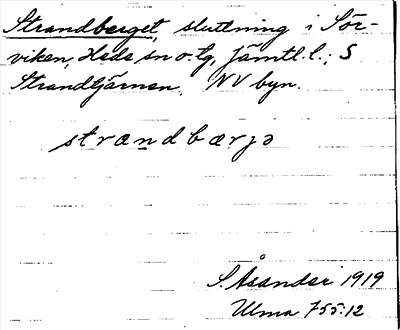 Strandberget, sluttning i Sör-
viken, Hede sn o. tg, Jämtl. l.; S
Strandtjärnen, NV byn.
strandbærjə
S. Åsander 1919
Ulma 755:12